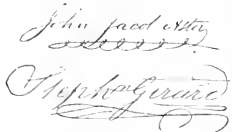 John Jacob Astor
Stephn Girard